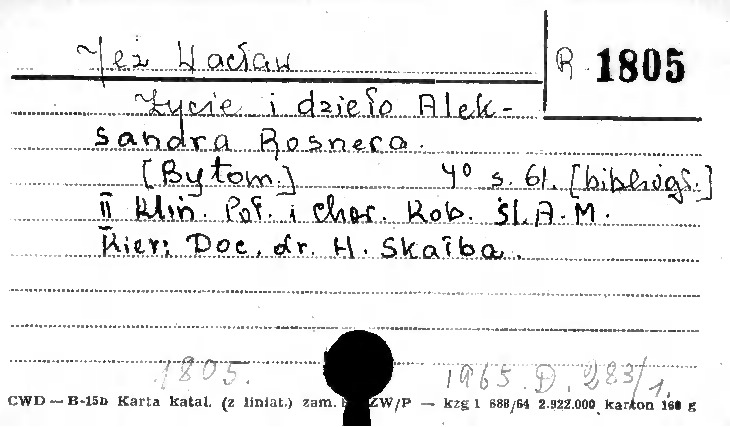 Jeż Wacław R 1805
Życie i dzieło Alek-
sandra Rosnera.
[Bytom.] 4° s. 61. [bibliogr.]
II Klin. Poł. i Chor. Kob. Śl. A. M.
Kier: Doc. dr. H. Skałba.
1805. 1965. D. 283/1.
CWD — B-15b Karta katal. (z liniat.) zam. ZW/P — kzg 1 688/64 2.922.000 karton 160 g